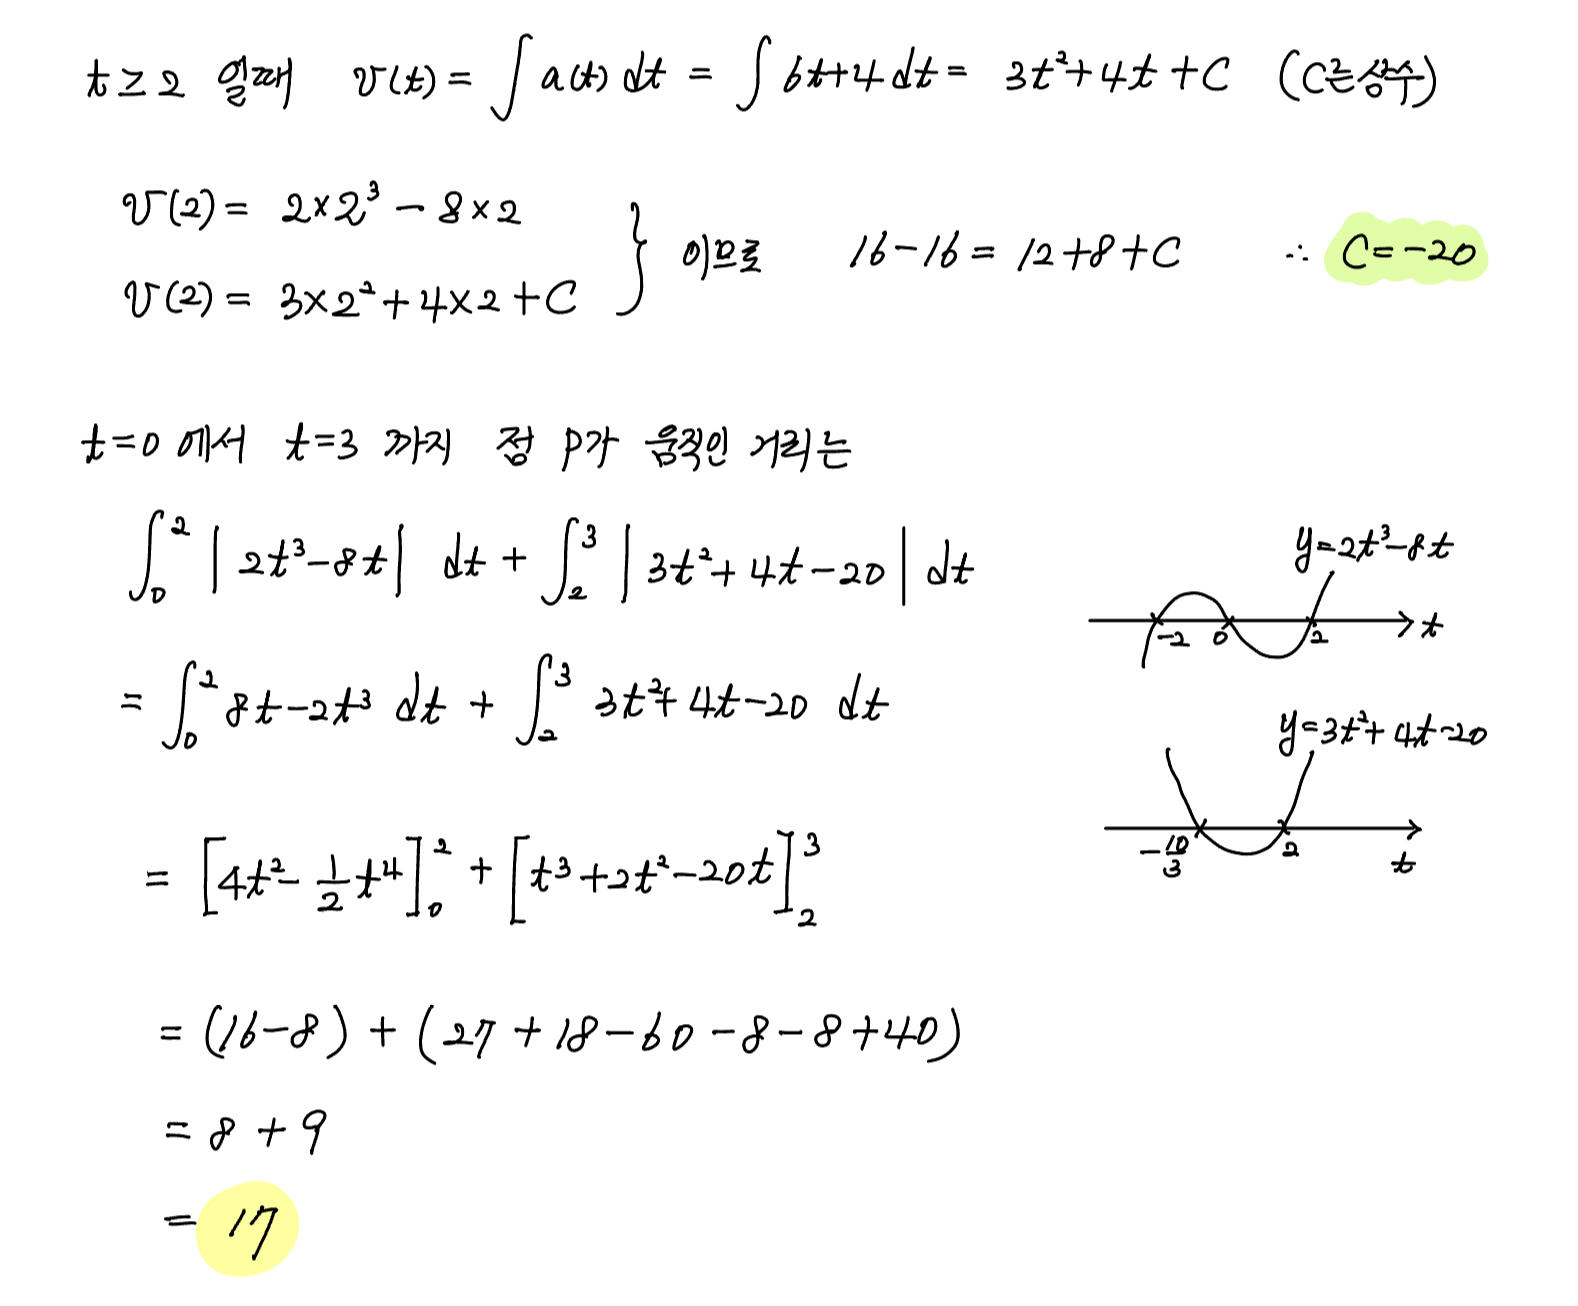 t≥2 일때 v(t) = ∫ a(t) dt = ∫ 6t+4 dt = 3t²+4t+C (C는 상수)
v(2) = 2×2³ - 8×2
v(2) = 3×2²+4×2+C
} 이므로 16-16 = 12+8+C ∴ C=-20
t=0 에서 t=3 까지 점 P가 움직인 거리는
∫₀² |2t³-8t| dt + ∫₂³ |3t²+4t-20| dt
= ∫₀² 8t-2t³ dt + ∫₂³ 3t²+4t-20 dt
= [4t² - 1/2 t⁴]₀² + [t³+2t²-20t]₂³
= (16-8) + (27+18-60-8-8+40)
= 8+9
= 17
y=2t³-8t
-2 0 2 t
y=3t²+4t-20
-10/3 2 t